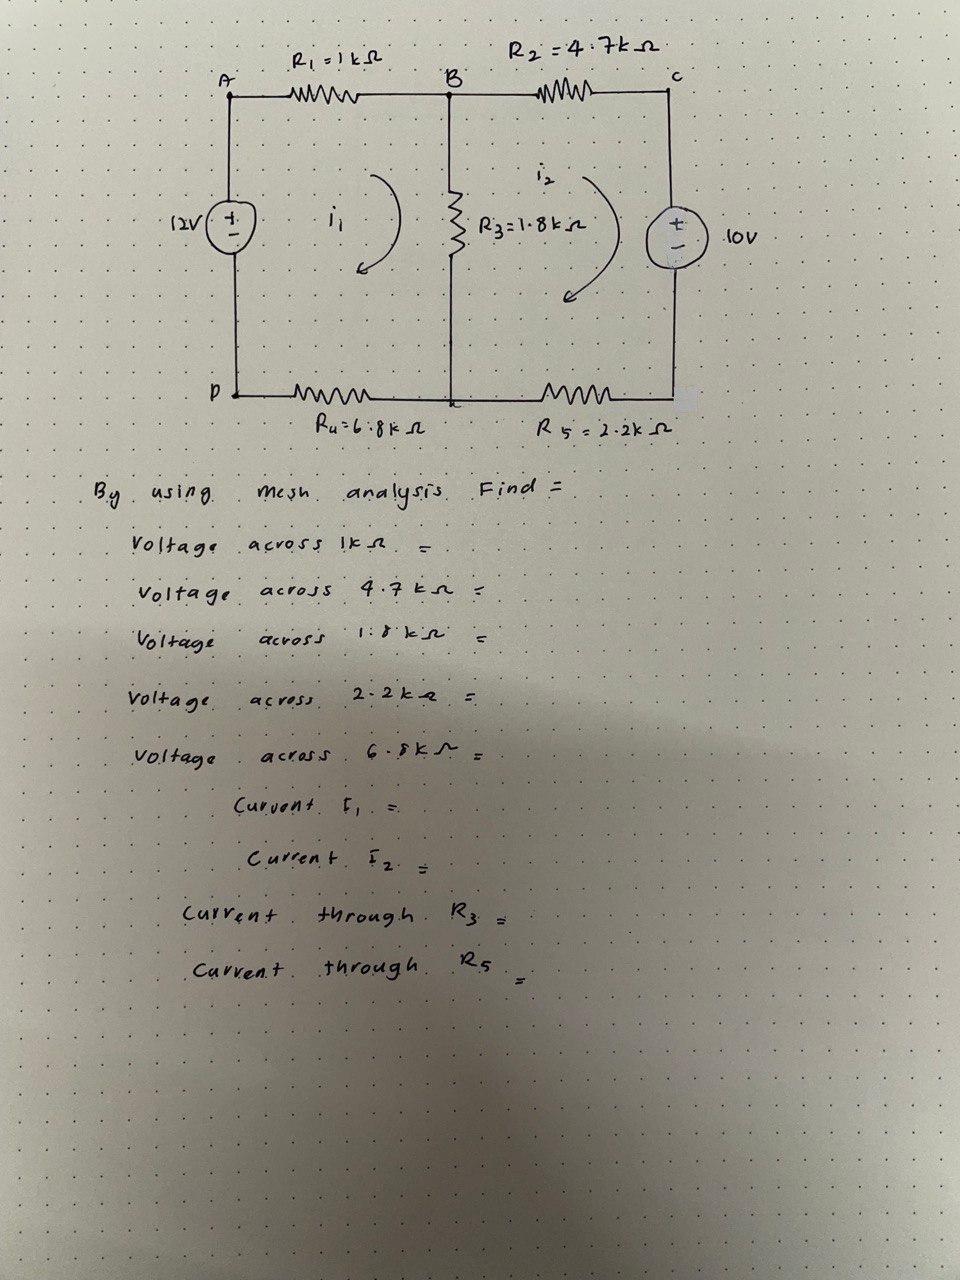 R1 = 1kΩ
R2 = 4.7kΩ
A
B
C
12V
+
-
i1
i2
R3=1.8kΩ
+
-
10V
D
R4=6.8kΩ
R5 = 2.2kΩ
By using mesh analysis Find =
Voltage across 1kΩ =
Voltage across 4.7kΩ =
Voltage across 1.8kΩ =
Voltage across 2.2kΩ =
Voltage across 6.8kΩ =
Current I1 =
Current I2 =
Current through R3 =
Current through R5 =